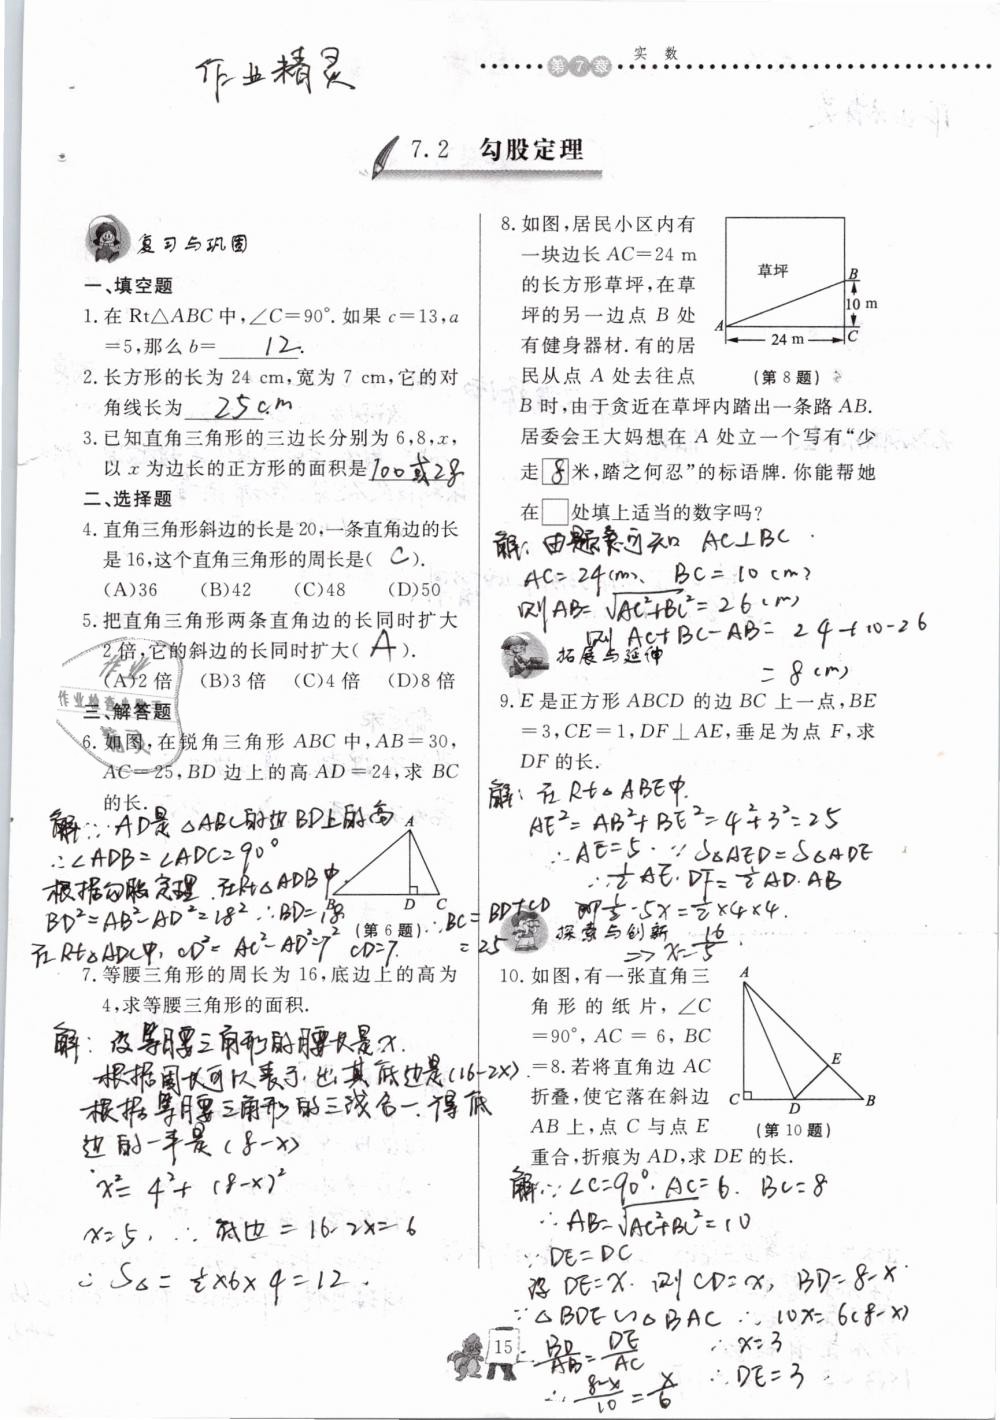 作业精灵
第7章 实数
7.2 勾股定理
复习与巩固
一、填空题
1.在 Rt△ABC 中,∠C=90°.如果 c=13,a
=5,那么 b= 12.
2.长方形的长为 24 cm,宽为 7 cm,它的对
角线长为 25cm
3.已知直角三角形的三边长分别为 6,8,x,
以 x 为边长的正方形的面积是 100或28
二、选择题
4.直角三角形斜边的长是 20,一条直角边的长
是 16,这个直角三角形的周长是( C ).
(A)36 (B)42 (C)48 (D)50
5.把直角三角形两条直角边的长同时扩大
2 倍,它的斜边的长同时扩大( A ).
(A)2 倍 (B)3 倍 (C)4 倍 (D)8 倍
作业
作业检查小助手
精灵
三、解答题
6.如图,在锐角三角形 ABC 中,AB=30,
AC=25,BD 边上的高 AD=24,求 BC
的长.
解:∵AD是△ABC的边BD上的高
∴∠ADB=∠ADC=90°
根据勾股定理.在Rt△ADB中
BD²=AB²-AD²=18² ∴BD=18
在Rt△ADC中, CD²=AC²-AD²=7² CD=7.
∴BC=BD+CD
=25
A
B D C
(第 6 题)
7.等腰三角形的周长为 16,底边上的高为
4,求等腰三角形的面积.
解:设等腰三角形的腰长是x.
根据周长可以表示出其底边是(16-2x).
根据等腰三角形的三线合一.得底
边的一半是(8-x)
∴x²=4²+(8-x)²
x=5, ∴底边=16-2x=6
∴S△=½×6×4=12.
8.如图,居民小区内有
一块边长 AC=24 m
的长方形草坪,在草
坪的另一边点 B 处
有健身器材.有的居
民从点 A 处去往点
B 时,由于贪近在草坪内踏出一条路 AB.
居委会王大妈想在 A 处立一个写有“少
走 8 米,踏之何忍”的标语牌.你能帮她
在□处填上适当的数字吗?
草坪
B
10 m
A
24 m
C
(第 8 题)
解:由题意可知 AC⊥BC.
AC=24(m)、 BC=10(m)
则AB=√AC²+BC²=26(m)
则 AC+BC-AB=24+10-26
=8(m)
拓展与延伸
9.E 是正方形 ABCD 的边 BC 上一点,BE
=3,CE=1,DF⊥AE,垂足为点 F,求
DF 的长.
解:在Rt△ABE中.
AE²=AB²+BE²=4²+3²=25
∴AE=5.∵S△AED=S△ADE
∴½AE·DF=½AD·AB
即½·5x=½×4×4.
⇒x=16/5.
探索与创新
10.如图,有一张直角三
角形的纸片,∠C
=90°,AC=6,BC
=8.若将直角边 AC
折叠,使它落在斜边
AB 上,点 C 与点 E
重合,折痕为 AD,求 DE 的长.
A
E
C D B
(第 10 题)
解:∵∠C=90°.AC=6.BC=8
∴AB=√AC²+BC²=10
∵DE=DC
设DE=x.则CD=x, BD=8-x.
∵△BDE∽△BAC ∴10x=6(8-x)
∴BD/AB=DE/AC ∴x=3
∴(8-x)/10=x/6 ∴DE=3
15